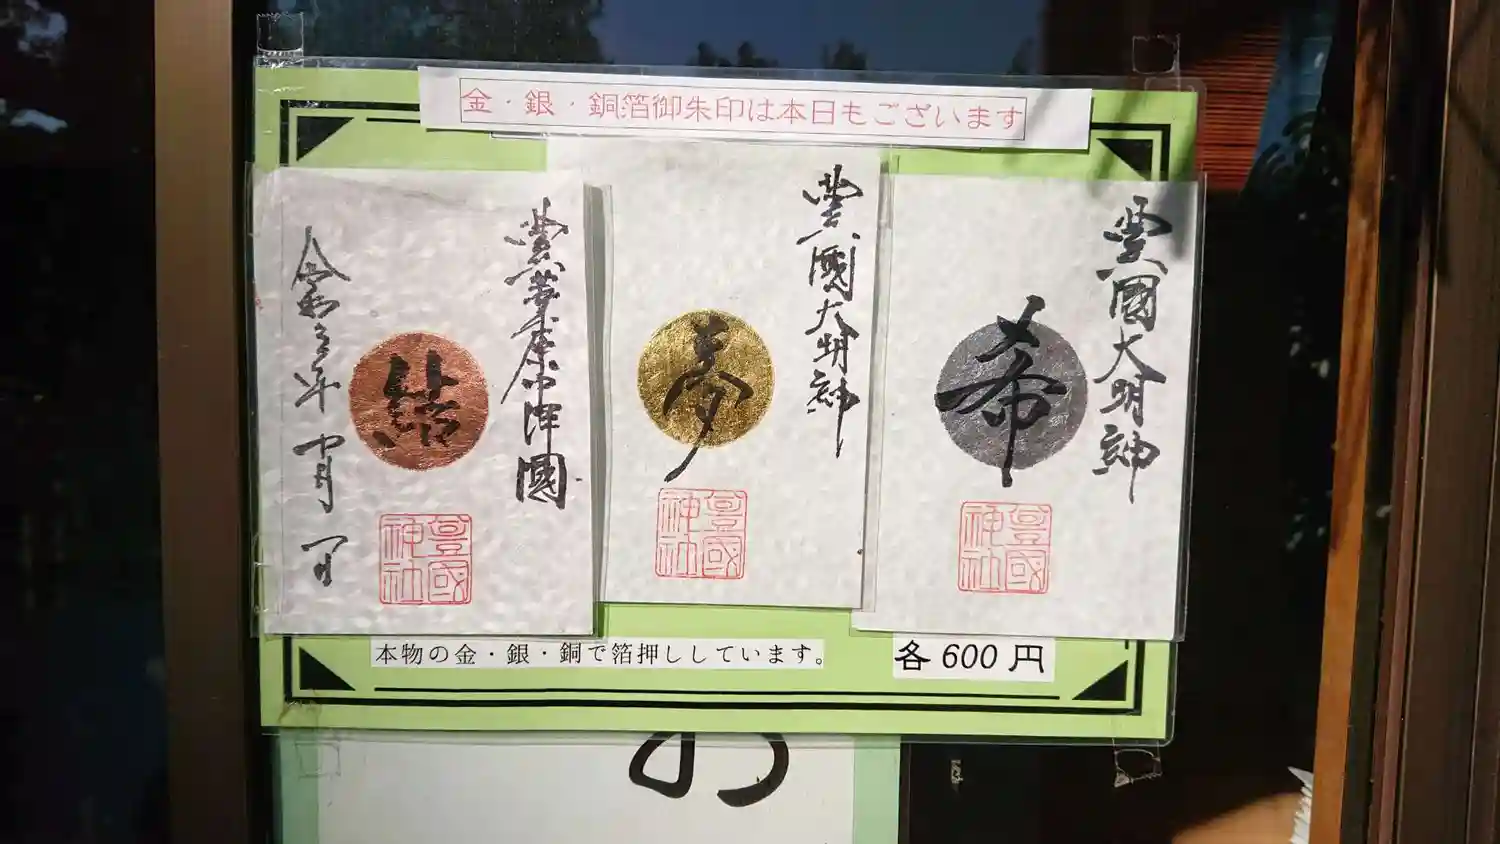 金・銀・銅箔御朱印は本日もございます
豊國大明神
希
豊國神社
豊國大明神
夢
豊國神社
豊葦原中津國
結
令和三年 十月 一日
豊國神社
本物の金・銀・銅で箔押ししています。
各600円
お